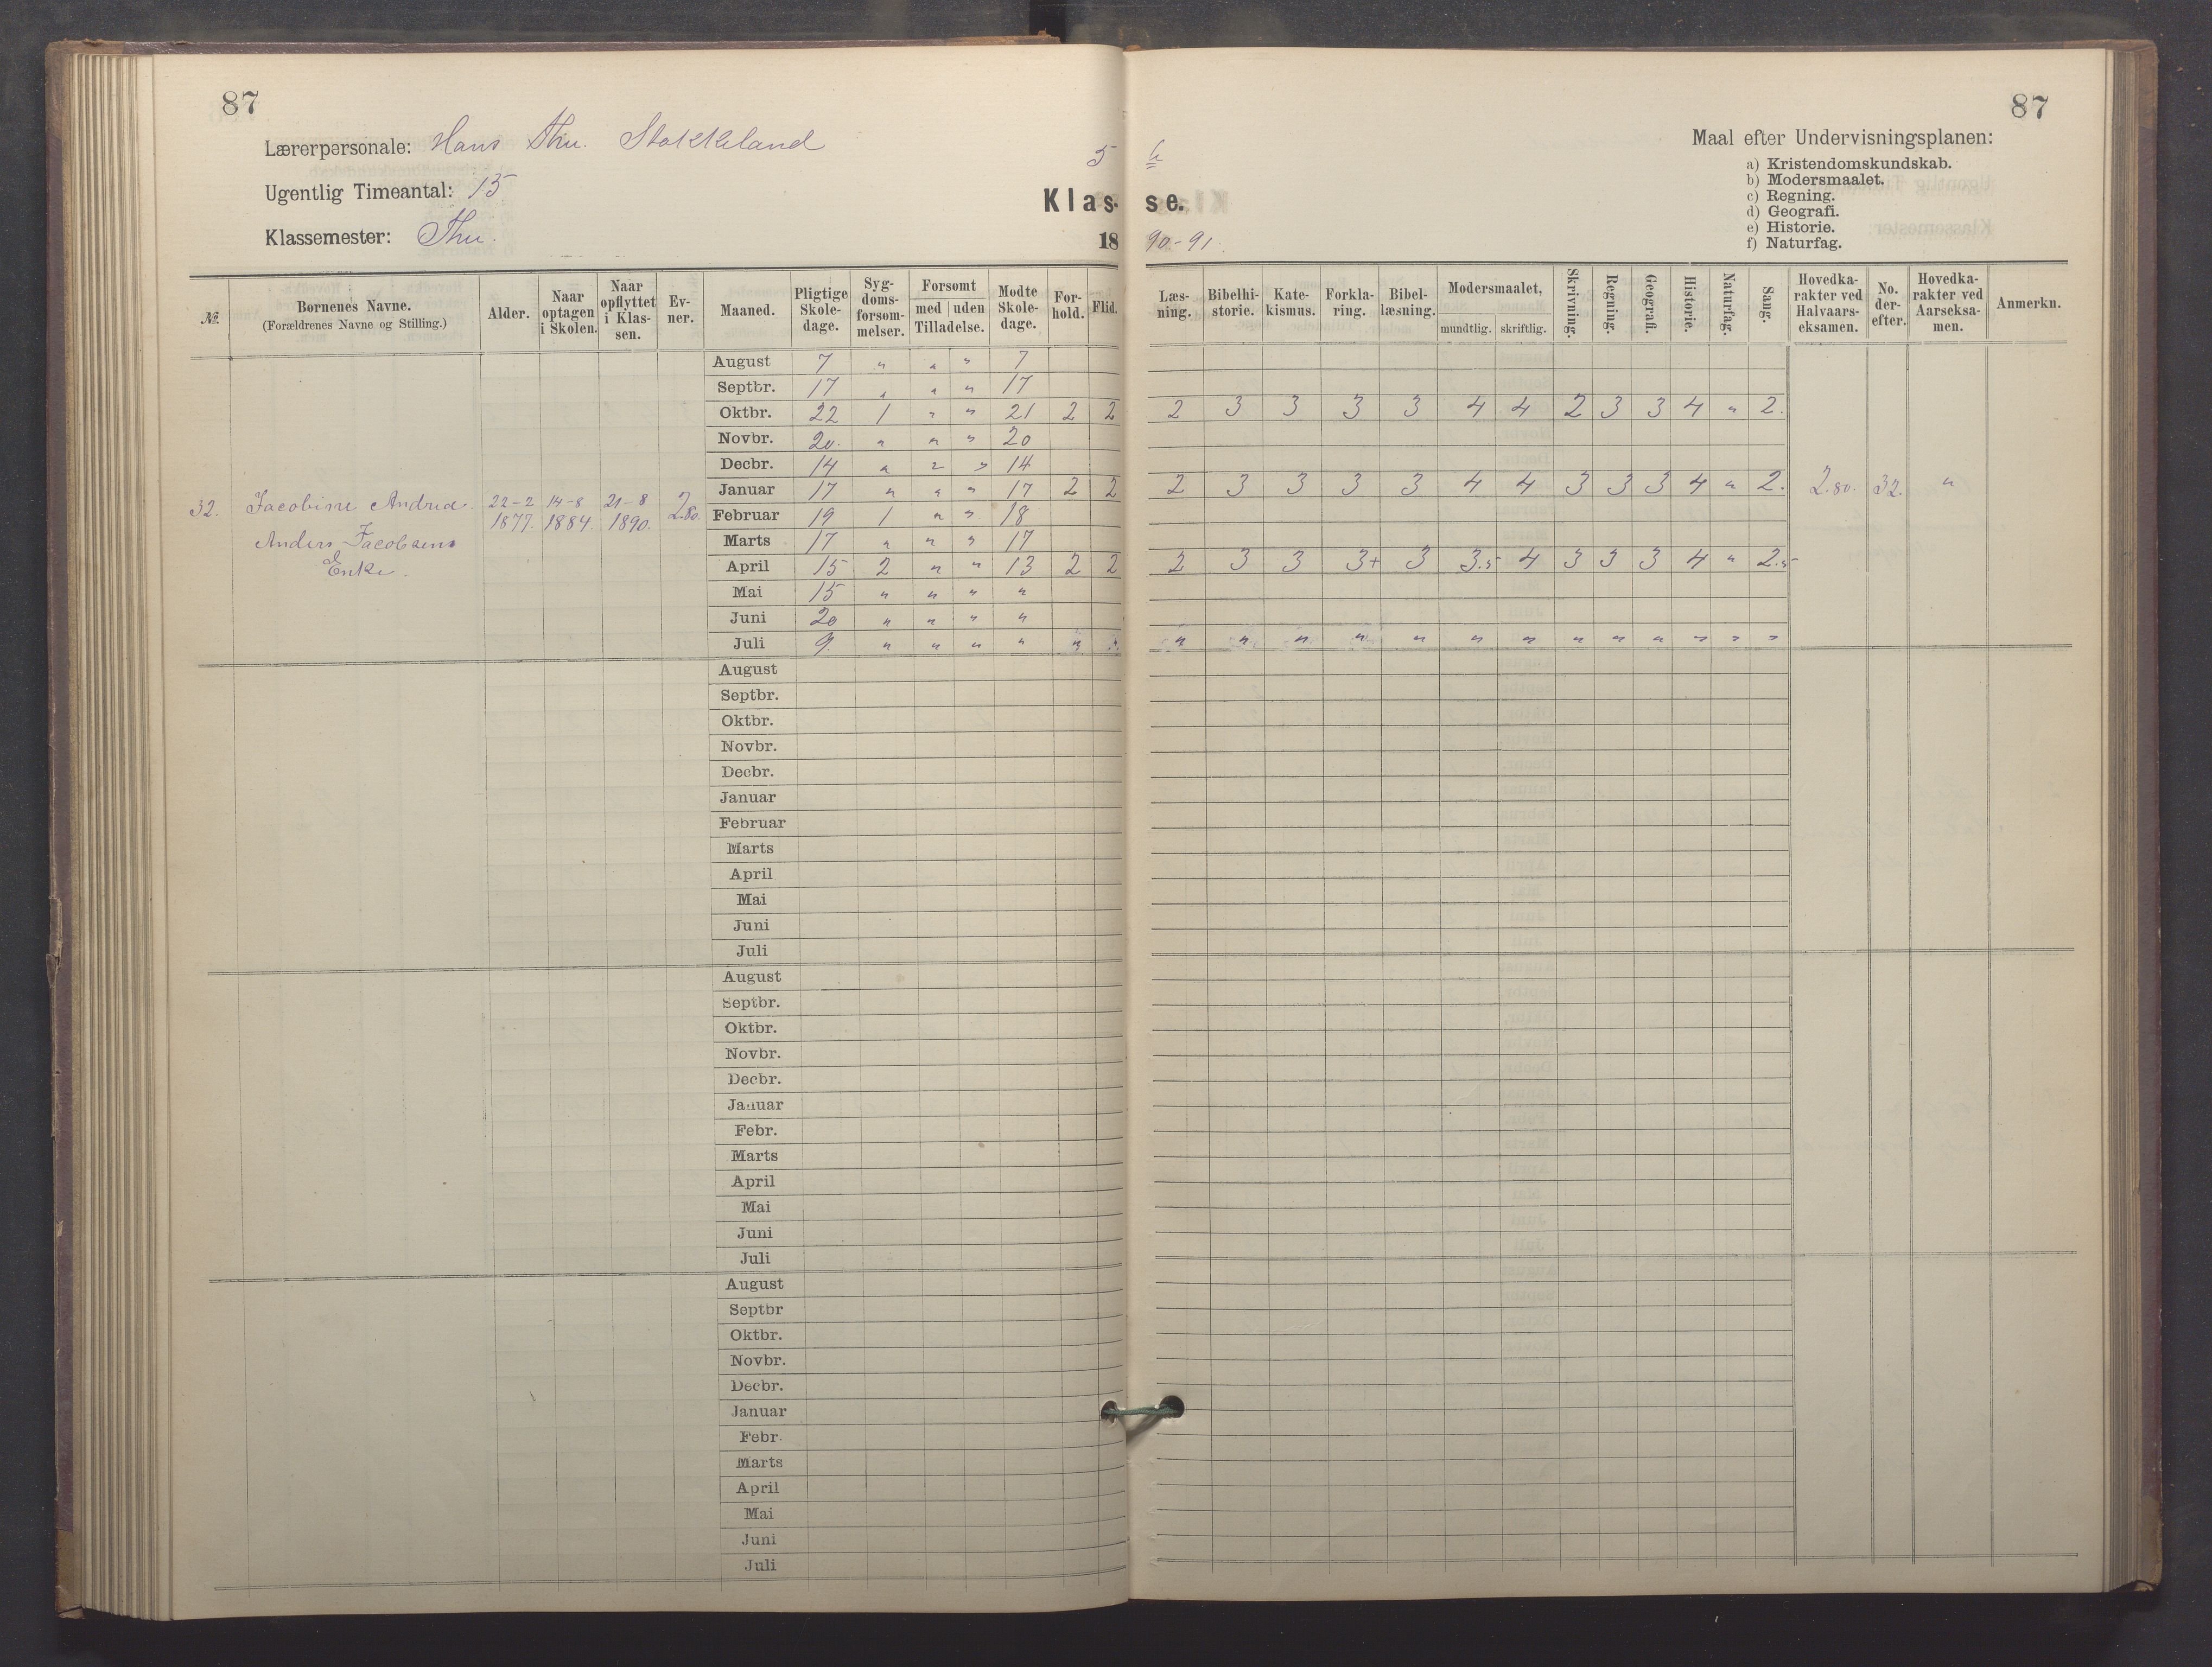 87
87
Lærerpersonale: Hans Thu. Stokkeland
Ugentlig Timeantal: 15
Klassemester: Thu.
5 b
Klas- se.
18 90-91.
Maal efter Undervisningsplanen:
a) Kristendomskundskab.
b) Modersmaalet.
c) Regning.
d) Geografi.
e) Historie.
f) Naturfag.
№ | Børnenes Navne. (Forældrenes Navne og Stilling.) | Alder. | Naar optagen i Skolen. | Naar opflyttet i Klassen. | Evner. | Maaned. | Pligtige Skoledage. | Sygdomsforsømmelser. | Forsømt med Tilladelse. | uden Tilladelse. | Mødte Skoledage. | Forhold. | Flid. | Læsning. | Bibelhistorie. | Katekismus. | Forklaring. | Bibellæsning. | Modersmaalet, mundtlig. | skriftlig. | Skrivning. | Regning. | Geografi. | Historie. | Naturfag. | Sang. | Hovedkarakter ved Halvaarseksamen. | No. derefter. | Hovedkarakter ved Aarseksamen. | Anmerkn.
32. Jacobine Andrea. 22-2 1877. 14-8 1884. 21-8 1890. 2.80.
Anders Jacobsens
Enke.
August 7 " " " 7
Septbr. 17 " " " 17
Oktbr. 22 1 " " 21 2 2 2 3 3 3 3 4 4 2 3 3 4 " 2.
Novbr. 20. " " " 20
Decbr. 14 " " " 14
Januar 17 " " " 17 2 2 2 3 3 3 3 4 4 3 3 3 4 " 2. 2.80. 32. "
Februar 19 1 " " 18
Marts 17 " " " 17
April 15 2 " " 13 2 2 2 3 3 3+ 3 3.5 4 3 3 3 4 " 2.5
Mai 15 " " " "
Juni 20 " " " "
Juli 9. " " " " " " " " " " " " " " " " " " "
August
Septbr.
Oktbr.
Novbr.
Decbr.
Januar
Februar
Marts
April
Mai
Juni
Juli
August
Septbr.
Oktbr.
Novbr.
Decbr.
Januar
Febr.
Marts
April
Mai
Juni
Juli
August
Septbr
Oktbr.
Novbr.
Decbr.
Januar
Febr.
Marts
April
Mai
Juni
Juli